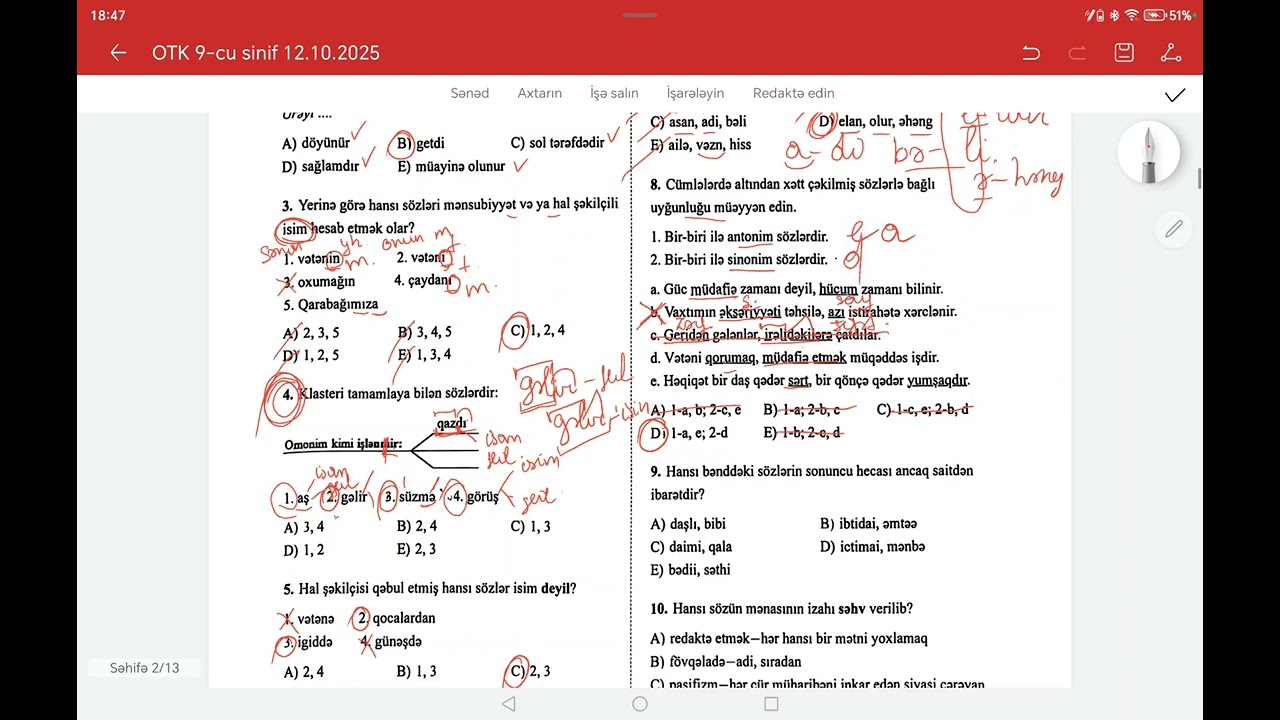 18:47
51%
OTK 9-cu sinif 12.10.2025
Sənəd Axtarın İşə salın İşarələyin Redaktə edin
A) döyünür B) getdi C) sol tərəfdədir
D) sağlamdır E) müayinə olunur
3. Yerinə görə hansı sözləri mənsubiyyət və ya hal şəkilçili
isim hesab etmək olar?
sənin yh. onun m
1. vətənin m. 2. vətəni t.
3. oxumağın 4. çaydanı m.
5. Qarabağımıza
A) 2, 3, 5 B) 3, 4, 5 C) 1, 2, 4
D) 1, 2, 5 E) 1, 3, 4
4. Klasteri tamamlaya bilən sözlərdir:
qazdı
Omonim kimi işlənmir:
1. aş 2. gəlir 3. süzmə 4. görüş
A) 3, 4 B) 2, 4 C) 1, 3
D) 1, 2 E) 2, 3
5. Hal şəkilçisi qəbul etmiş hansı sözlər isim deyil?
1. vətənə 2. qocalardan
3. igiddə 4. günəşdə
A) 2, 4 B) 1, 3 C) 2, 3
C) asan, adi, bəli D) elan, olur, əhəng
E) ailə, vəzn, hiss
8. Cümlələrdə altından xətt çəkilmiş sözlərlə bağlı
uyğunluğu müəyyən edin.
1. Bir-biri ilə antonim sözlərdir.
2. Bir-biri ilə sinonim sözlərdir.
a. Güc müdafiə zamanı deyil, hücum zamanı bilinir.
b. Vaxtımın əksəriyyəti təhsilə, azı istirahətə xərclənir.
c. Geridən gələnlər, irəlidəkilərə çatdılar.
d. Vətəni qorumaq, müdafiə etmək müqəddəs işdir.
e. Həqiqət bir daş qədər sərt, bir qönçə qədər yumşaqdır.
A) 1-a, b; 2-c, e B) 1-a; 2-b, c C) 1-c, e; 2-b, d
D) 1-a, e; 2-d E) 1-b; 2-c, d
9. Hansı bənddəki sözlərin sonuncu hecası ancaq saitdən
ibarətdir?
A) daşlı, bibi B) ibtidai, əmtəə
C) daimi, qala D) ictimai, mənbə
E) bədii, səthi
10. Hansı sözün mənasının izahı səhv verilib?
A) redaktə etmək—hər hansı bir mətni yoxlamaq
B) fövqəladə—adi, sıradan
C) pasifizm—hər cür müharibəni inkar edən siyasi cərəyan
Səhifə 2/13